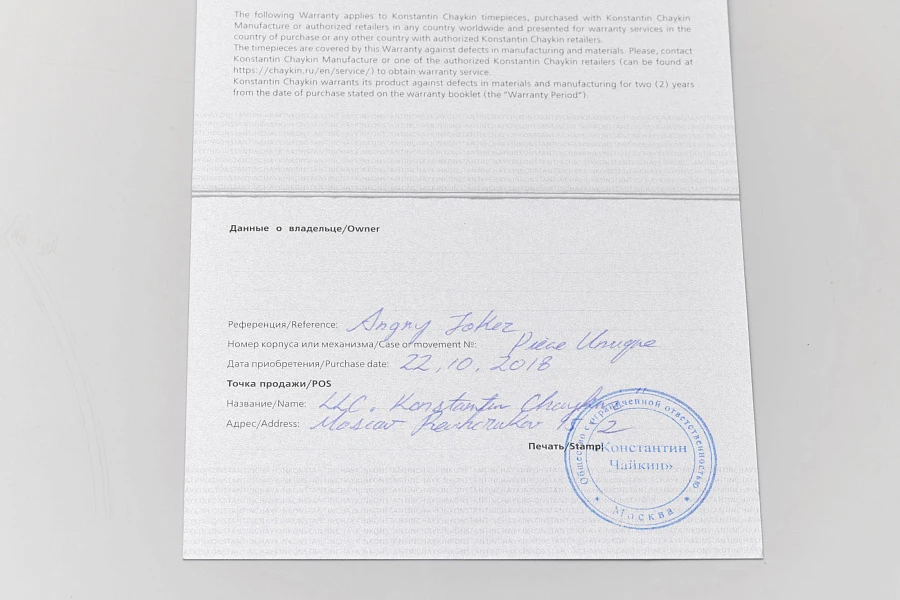 The following Warranty applies to Konstantin Chaykin timepieces, purchased with Konstantin Chaykin
Manufacture or authorized retailers in any country worldwide and presented for warranty services in the
country of purchase or any other country with authorized Konstantin Chaykin retailers.
The timepieces are covered by this Warranty against defects in manufacturing and materials. Please, contact
Konstantin Chaykin Manufacture or one of the authorized Konstantin Chaykin retailers (can be found at
https://chaykin.ru/en/service/) to obtain warranty service.
Konstantin Chaykin warrants its product against defects in materials and manufacturing for two (2) years
from the date of purchase stated on the warranty booklet (the "Warranty Period").
Данные о владельце/Owner
Референция/Reference: Angry Joker
Номер корпуса или механизма/Case or movement №: Piece Unique
Дата приобретения/Purchase date: 22.10.2018
Точка продажи/POS
Название/Name: LLC. Konstantin Chaykin
Адрес/Address: Moscow
Печать/Stamp
Общество с ограниченной ответственностью
«Константин
Чайкин»
Москва